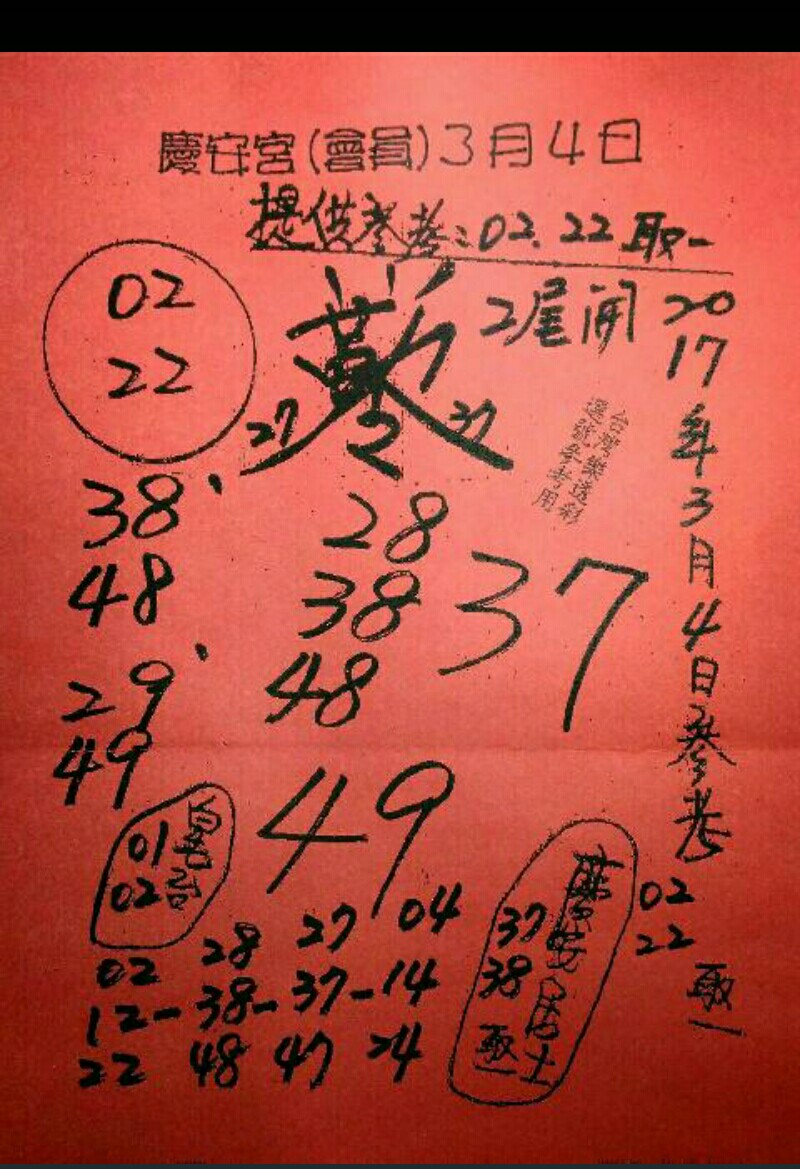 慶安宮(會員)3月4日
提供參考:02.22取一
2尾開
02
22
27
37
2
台灣樂透彩
選號參考用
2017年3月4日參考
02
22
取一
38
48
29
49
28
38
48
37
49
01
02
28 27 04
02
12-38-37-14
22 48 47 24
慶安居士
37
38
取一